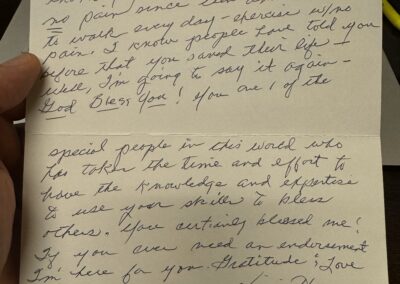 no pain since
to work every day - exercise w/no
pain. I know people have told you
before that you saved their life -
well, I'm going to say it again -
God Bless You! You are 1 of the
special people in this world who
has taken the time and effort to
have the knowledge and expertise
to use your skills to bless
others. You certainly blessed me!
If you ever need an endorsement
I'm here for you. Gratitude & Love